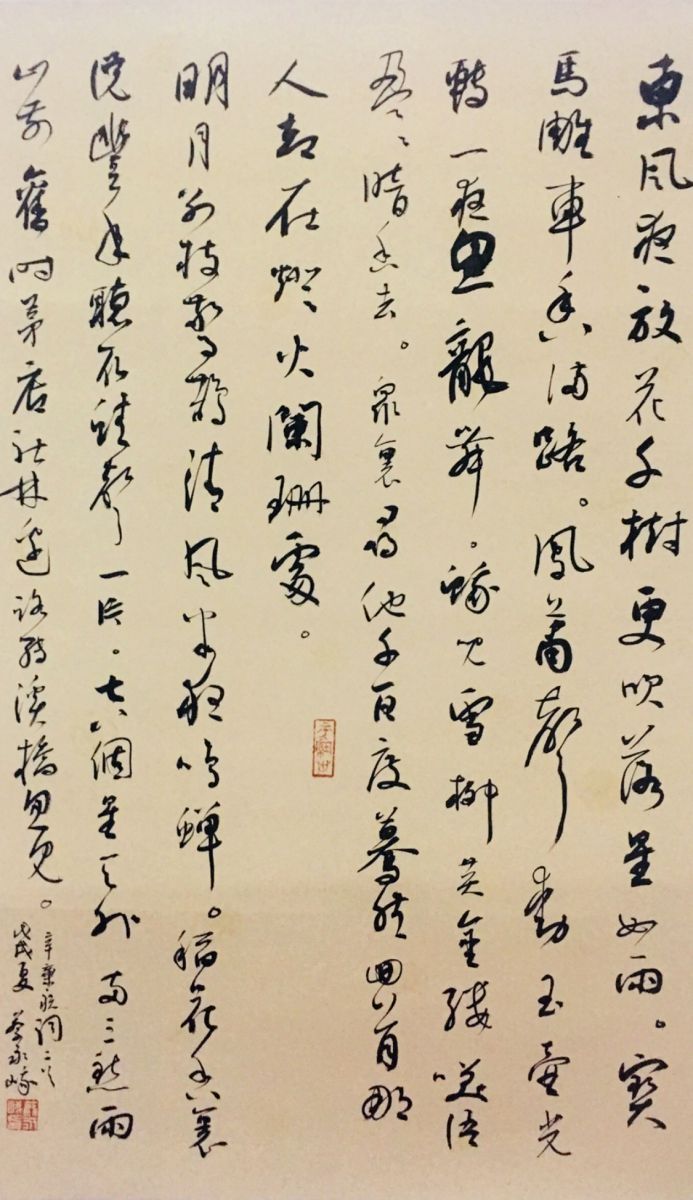 東風夜放花千樹更吹落星如雨。寶
馬雕車香滿路。鳳簫聲動玉壺光
轉一夜魚龍舞。蛾兒雪柳黃金縷笑語
盈〻暗香去。衆裏尋他千百度驀然回首那
人却在燈火闌珊處。
明月别枝驚鵲清風半夜鳴蟬。稻花香裏
說豐年聽取蛙聲一片。七八個星天外兩三點雨
山前舊時茅店社林邊路轉溪橋忽見。
辛棄疾詞二首
戊戌夏